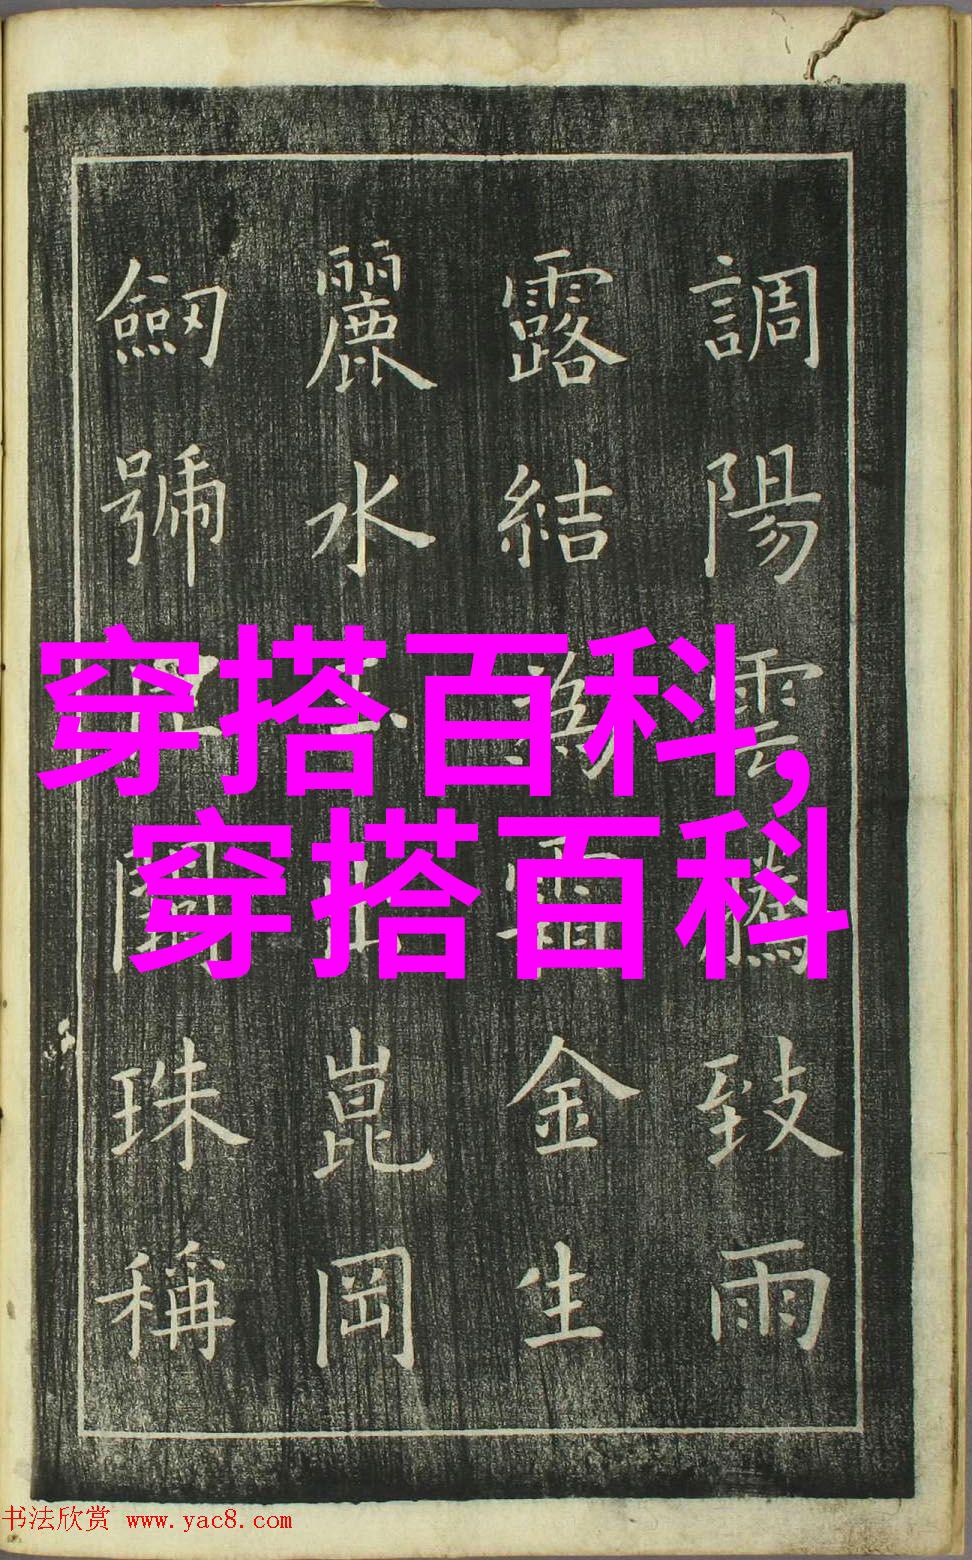 調陽雲騰致雨
露結為霜金生
麗水玉出崑岡
劒號巨闕珠稱
穿搭百科,
穿搭百科
书法欣赏 www.yac8.com